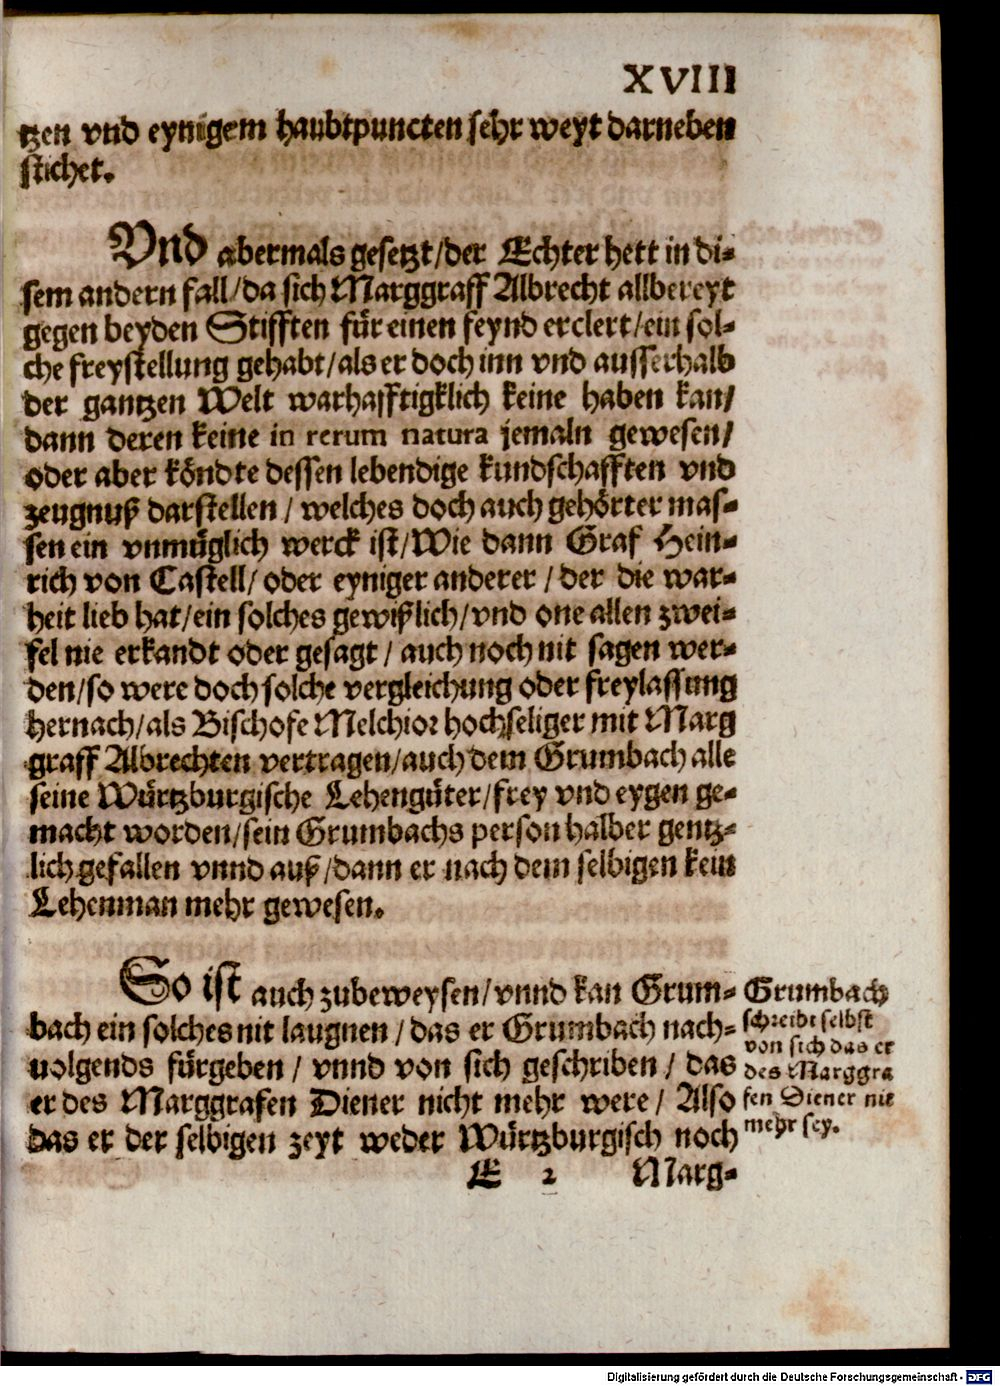 XVIII
tzen vnd eynigem haubtpuncten sehr weyt darneben
stichet.
Vnd abermals gesetzt/der Echter hett in di-
sem andern fall/da sich Marggraff Albrecht allbereyt
gegen beyden Stifften für einen feynd erclert/ein sol-
che freystellung gehabt/als er doch inn vnd ausserhalb
der gantzen Welt warhafftigklich keine haben kan/
dann deren keine in rerum natura jemaln gewesen/
oder aber köndte dessen lebendige kundschafften vnd
zeugnuß darstellen/welches doch auch gehörter mas-
sen ein vnmüglich werck ist/Wie dann Graf Hein-
rich von Castell/oder eyniger anderer/der die war-
heit lieb hat/ein solches gewißlich/vnd one allen zwei-
fel nie erkandt oder gesagt/auch noch nit sagen wer-
den/so were doch solche vergleichung oder freylassung
hernach/als Bischofe Melchior hochseliger mit Marg
graff Albrechten vertragen/auch dem Grumbach alle
seine Würtzburgische Lehengüter/frey vnd eygen ge-
macht worden/sein Grumbachs person halber gentz-
lich gefallen vnnd auß/dann er nach dem selbigen kein
Lehenman mehr gewesen.
So ist auch zubeweysen/vnnd kan Grum-
bach ein solches nit laugnen/das er Grumbach nach-
uolgends fürgeben/vnnd von sich geschriben/das
er des Marggrafen Diener nicht mehr were/Also
das er der selbigen zeyt weder Würtzburgisch noch
Grumbach
schreibt selbst
von sich das er
des Marggra
fen Diener nit
mehr sey.
E 2 Marg-
Digitalisierung gefördert durch die Deutsche Forschungsgemeinschaft - DFG